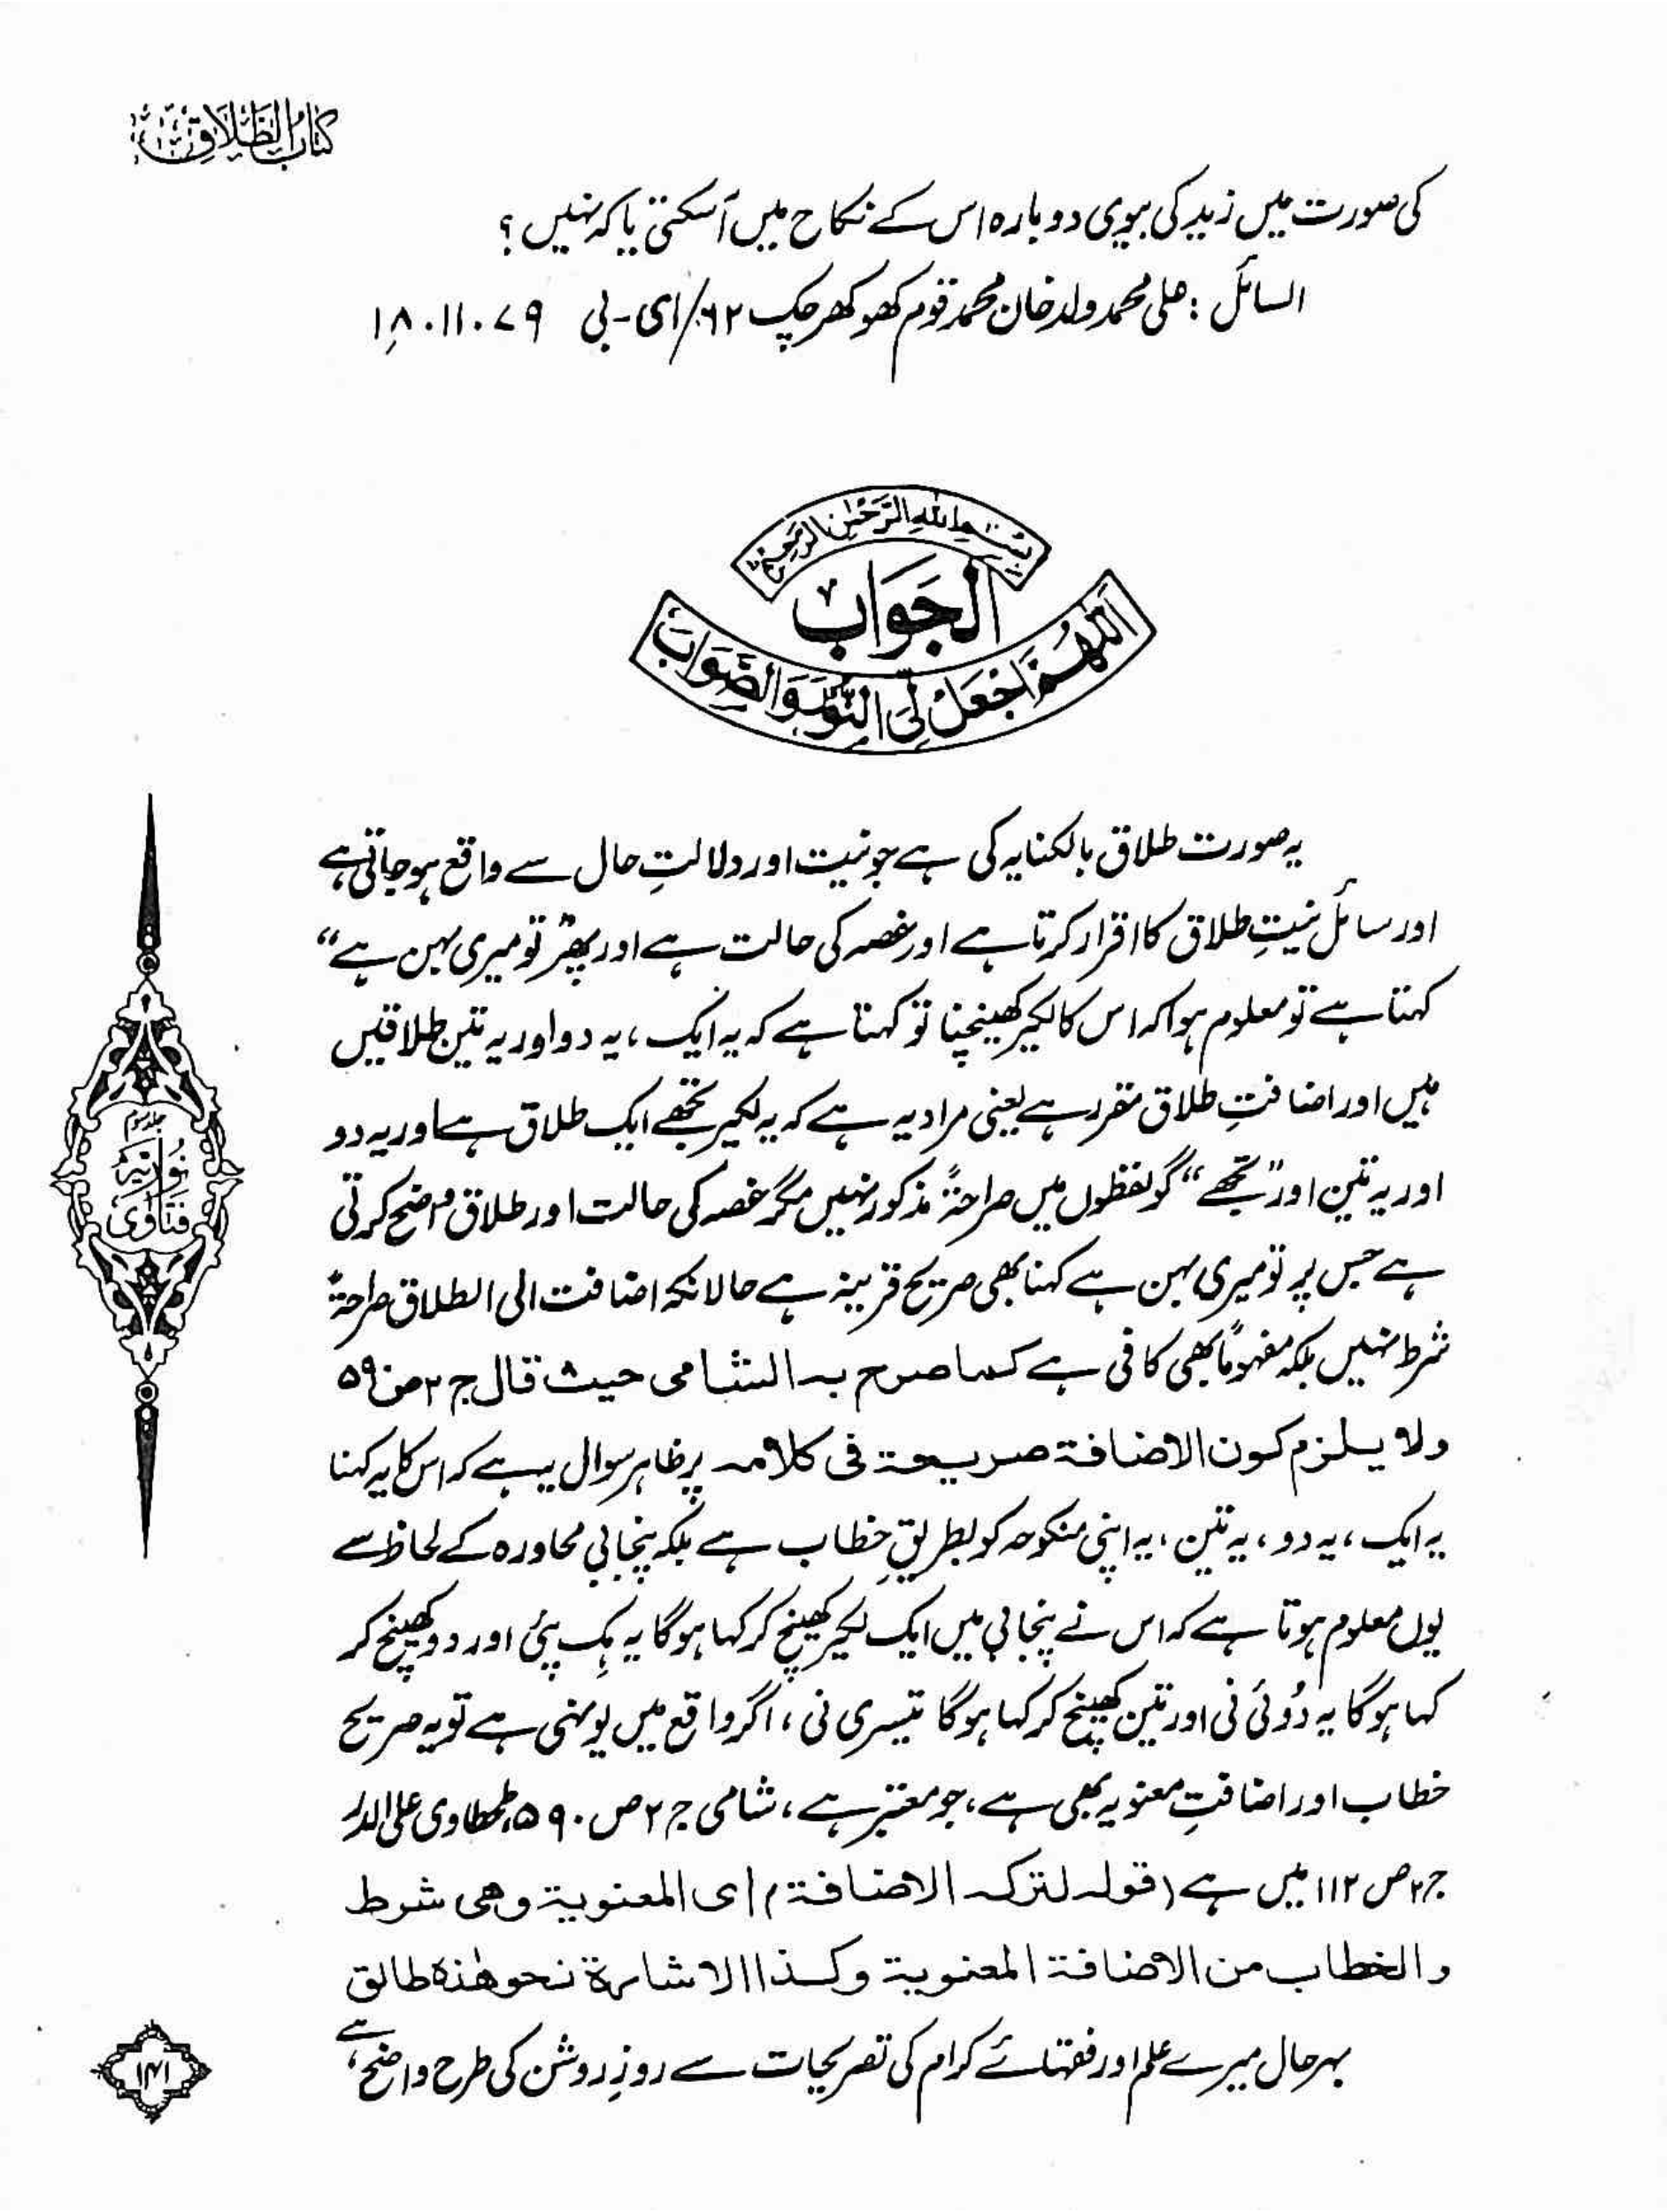 کتاب الطلاق
کی صورت میں زید کی بیوی دوبارہ اس کے نکاح میں آسکتی یا کہ نہیں؟
السائل: علی محمد ولد خان محمد قوم کھوکھر چک ۶۲/ای-بی ۱۸.۱۱.۷۹
بسم الله الرحمن الرحيم
الجَوَاب
اللهم اجعل لی النور والصواب
یہ صورت طلاق بالکنایہ کی ہے جو نیت اور دلالتِ حال سے واقع ہو جاتی ہے
اور سائل نیتِ طلاق کا اقرار کرتا ہے اور غصہ کی حالت ہے اور پھر ”تو میری بہن ہے“
کہتا ہے تو معلوم ہوا کہ اس کا لکیر کھینچنا تو کہتا ہے کہ یہ ایک، یہ دو اور یہ تین طلاقیں
ہیں اور اضافتِ طلاق مقرر ہے یعنی مراد یہ ہے کہ یہ لکیر تجھے ایک طلاق ہے اور یہ دو
اور یہ تین اور ”تجھے“ گو لفظوں میں صراحۃً مذکور نہیں مگر غصہ کی حالت اور طلاق واضح کرتی
ہے جس پر تو میری بہن ہے کہنا بھی صریح قرینہ ہے حالانکہ اضافت الی الطلاق صراحۃً
شرط نہیں بلکہ مفہوماً بھی کافی ہے کما صرح بہ الشامی حیث قال ج ۲ ص ۵۹۰
ولا یلزم کون الاضافة صریحة فی کلامہ پر ظاہر سوال یہ ہے کہ اس کا یہ کہنا
یہ ایک، یہ دو، یہ تین، یہ اپنی منکوحہ کو بطریقِ خطاب ہے بلکہ پنجابی محاورہ کے لحاظ سے
یوں معلوم ہوتا ہے کہ اس نے پنجابی میں ایک لکیر کھینچ کر کہا ہوگا یہ ہِک پئی اور دو کھینچ کر
کہا ہوگا یہ دُوئی نی اور تین کھینچ کر کہا ہوگا تیسری نی، اگر واقع میں یونہی ہے تو یہ صریح
خطاب اور اضافتِ معنویہ بھی ہے، جو معتبر ہے، شامی ج ۲ ص ۵۹۰، طحطاوی علی الدر
ج ۲ ص ۱۱۲ میں ہے (قولہ لترکہ الاضافة) ای المعنویة وھی شرط
والخطاب من الاضافة المعنویة وکذا الاشارة نحو ھٰذہ طالق
بہرحال میرے علم اور فقہائے کرام کی تصریحات سے روزِ روشن کی طرح واضح ہے،
جلد سوم
فتاوی نوریہ
۱۴۱